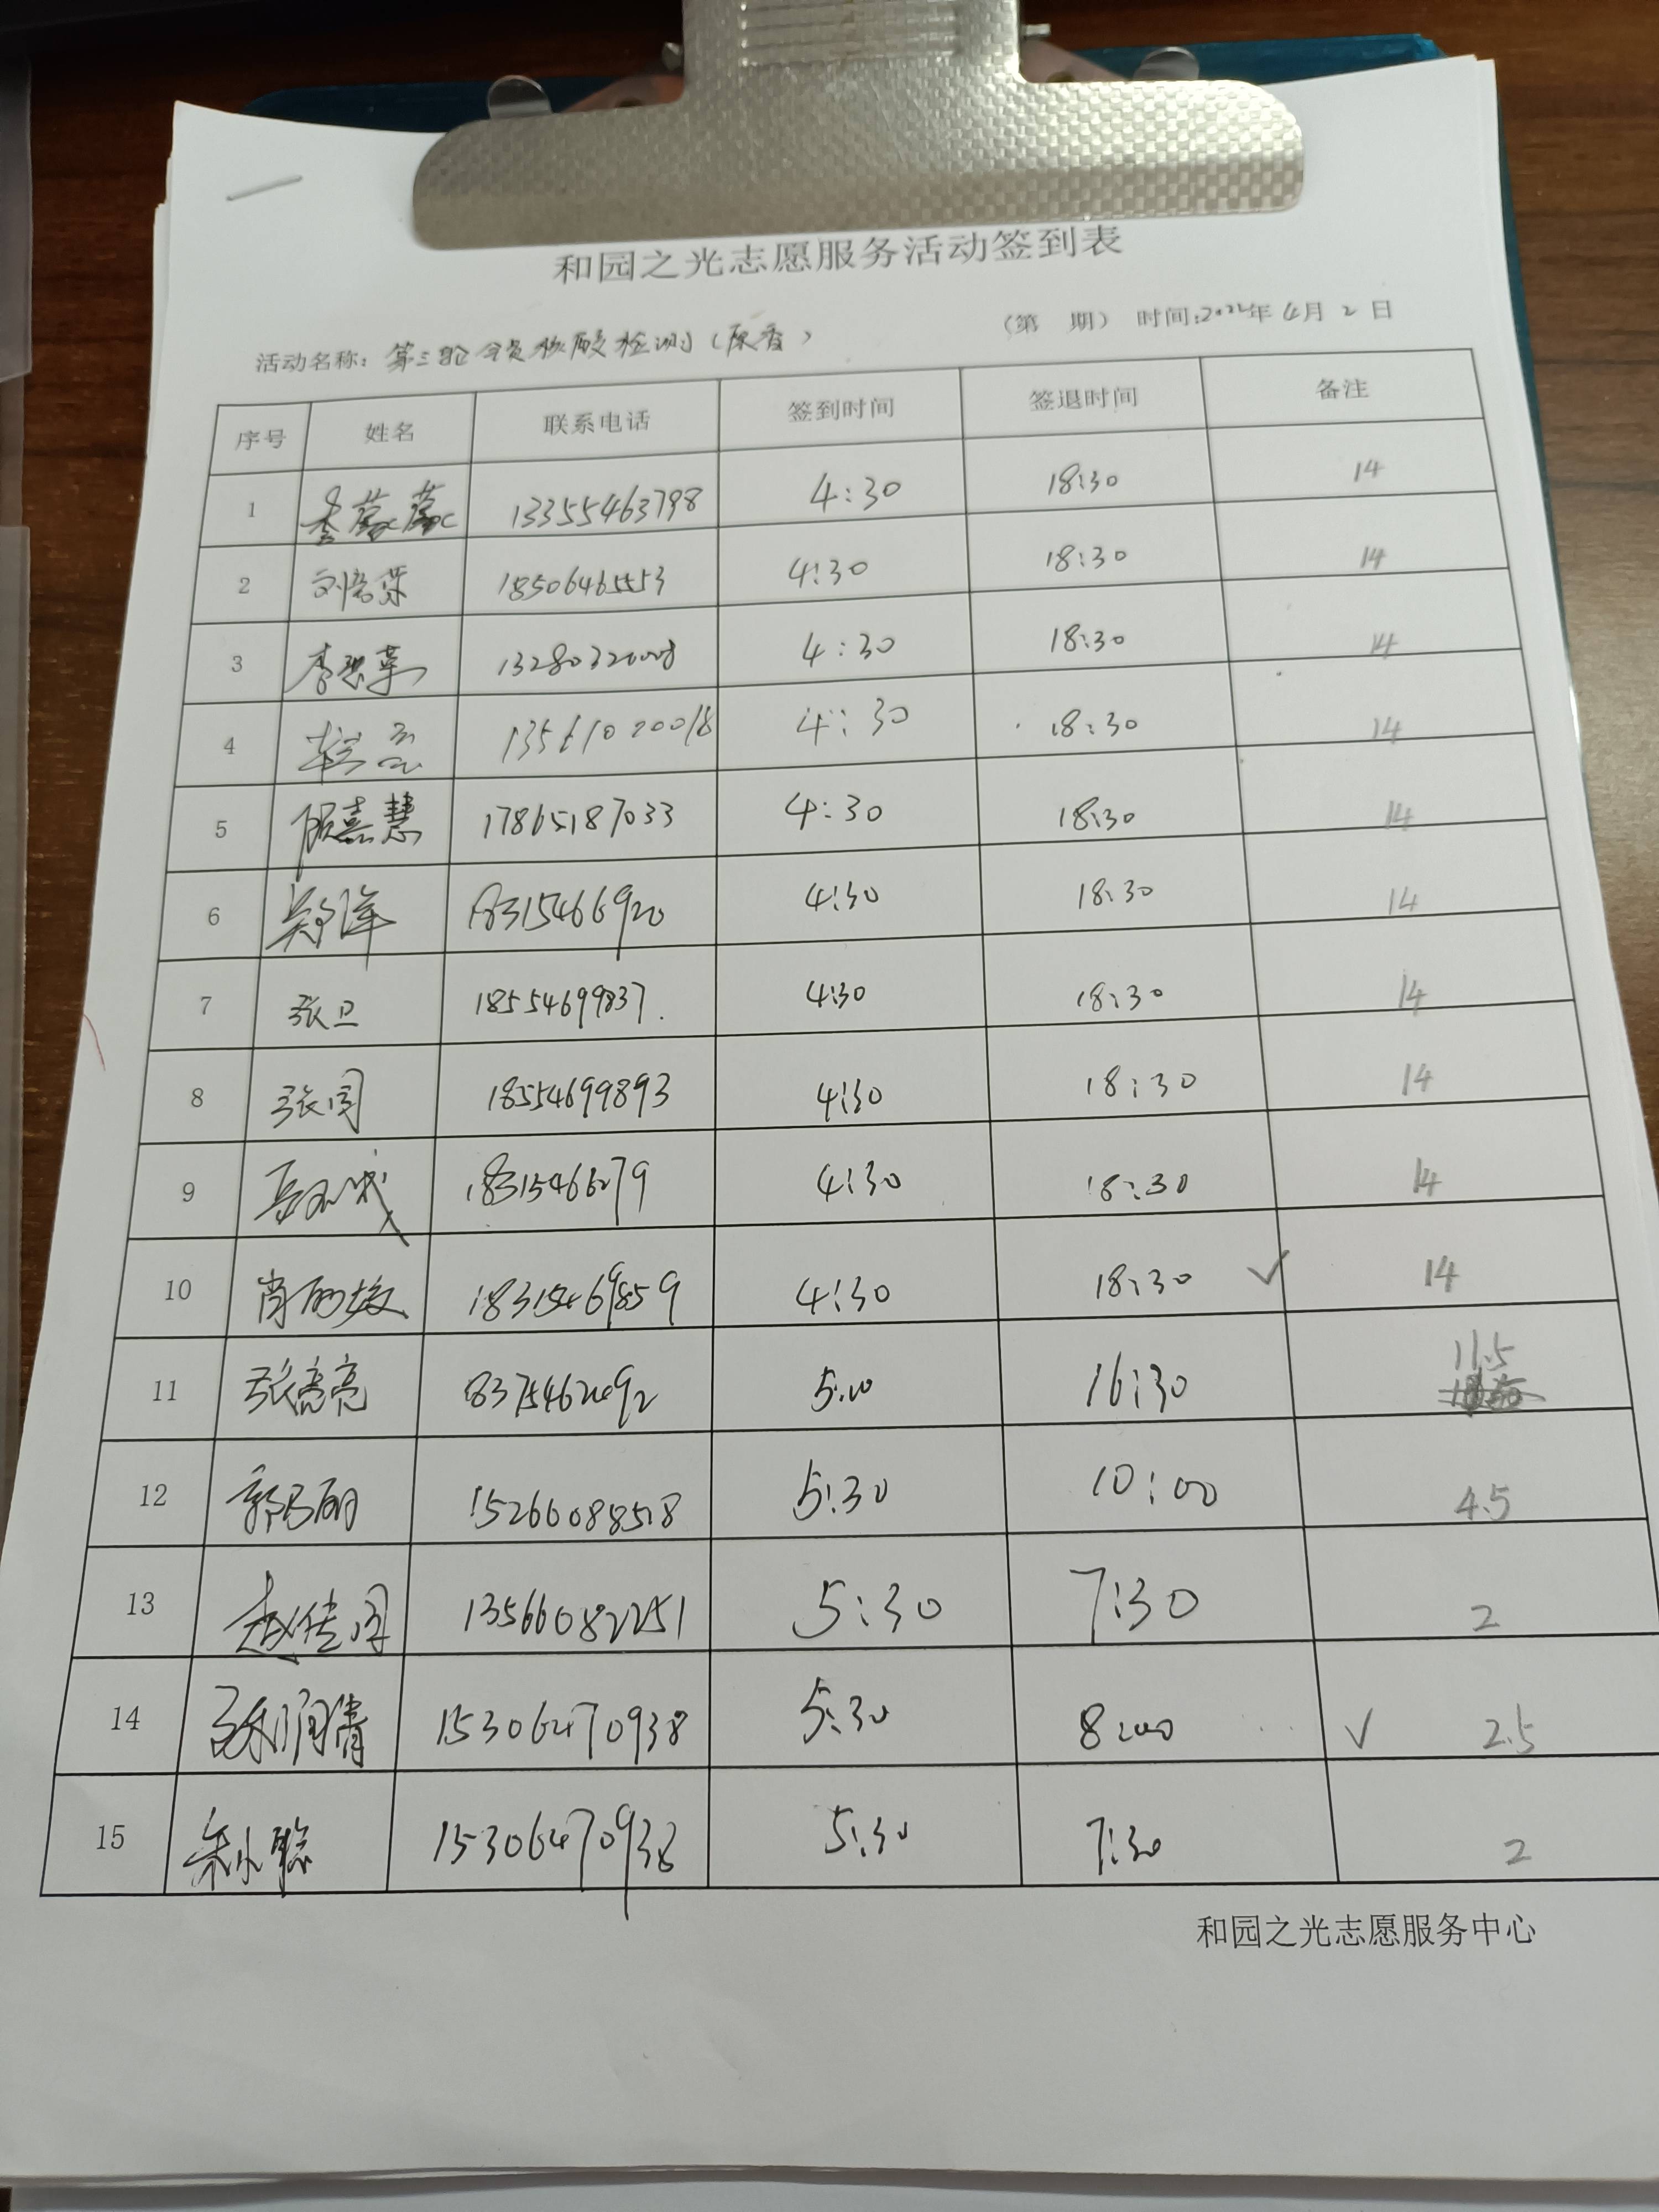 和园之光志愿服务活动签到表
(第 期) 时间:2022年4月2日
活动名称: 第三轮全员核酸检测(原香)
序号 姓名 联系电话 签到时间 签退时间 备注
1 李蒙蒙 13355463798 4:30 18:30 14
2 18506465553 4:30 18:30 14
3 4:30 18:30 14
4 13561020018 4:30 18:30 14
5 顾嘉慧 17865187033 4:30 18:30 14
6 18315466920 4:30 18:30 14
7 张卫 18554699837. 4:30 18:30 14
8 张同 18554699893 4:30 18:30 14
9 4:30 18:30 14
10 18315469859 4:30 18:30 √ 14
11 张亮亮 5:00 16:30 11.5
12 15266088518 5:30 10:00 4.5
13 13566082251 5:30 7:30 2
14 15306470938 5:30 8:00 √ 2.5
15 朱小聪 15306470938 5:30 7:30 2
和园之光志愿服务中心